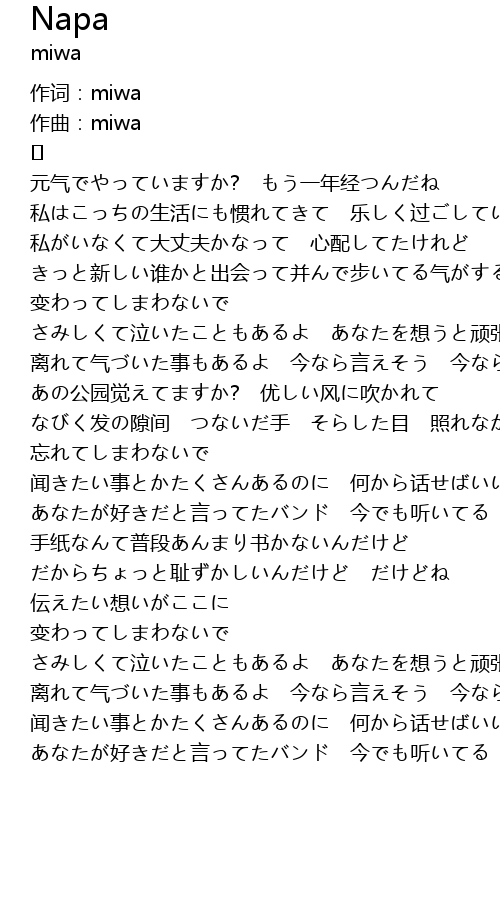 Napa
miwa
作词：miwa
作曲：miwa
[]
元气でやっていますか?　もう一年经つんだね
私はこっちの生活にも惯れてきて　乐しく过ごしてい
私がいなくて大丈夫かなって　心配してたけれど
きっと新しい谁かと出会って并んで步いてる气がする
变わってしまわないで
さみしくて泣いたこともあるよ　あなたを想うと顽张
离れて气づいた事もあるよ　今なら言えそう　今なら
あの公园觉えてますか?　优しい风に吹かれて
なびく发の隙间　つないだ手　そらした目　照れなか
忘れてしまわないで
闻きたい事とかたくさんあるのに　何から话せばいい
あなたが好きだと言ってたバンド　今でも听いてる
手纸なんて普段あんまり书かないんだけど
だからちょっと耻ずかしいんだけど　だけどね
伝えたい想いがここに
变わってしまわないで
さみしくて泣いたこともあるよ　あなたを想うと顽张
离れて气づいた事もあるよ　今なら言えそう　今なら
闻きたい事とかたくさんあるのに　何から话せばいい
あなたが好きだと言ってたバンド　今でも听いてる